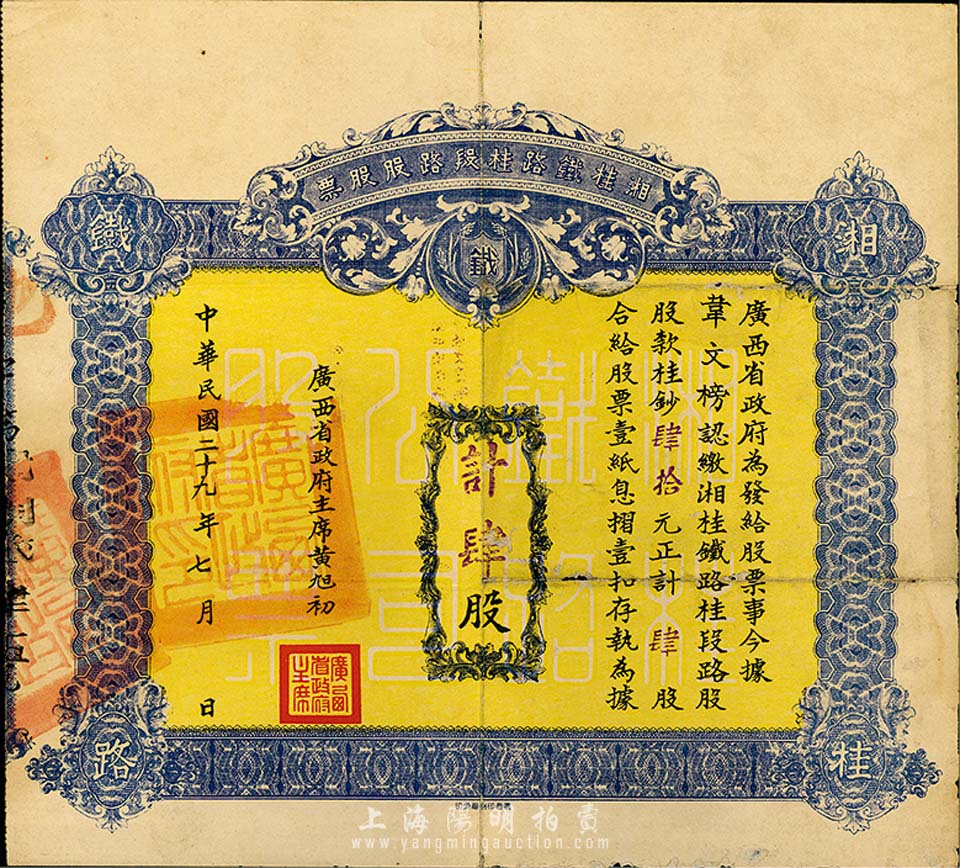 湘桂鐵路桂段路股股票
湘
桂
鐵
路
鐵
廣西省政府為發給股票事今據
韋文榜認繳湘桂鐵路桂段路股
股款桂鈔肆拾元正計肆股
合給股票壹紙息摺壹扣存執為據
計肆股
廣西省政府主席黃旭初
中華民國二十九年七月 日
廣西省政府主席
湘桂鐵路公司
上海陽明拍賣
www.yangmingauction.com